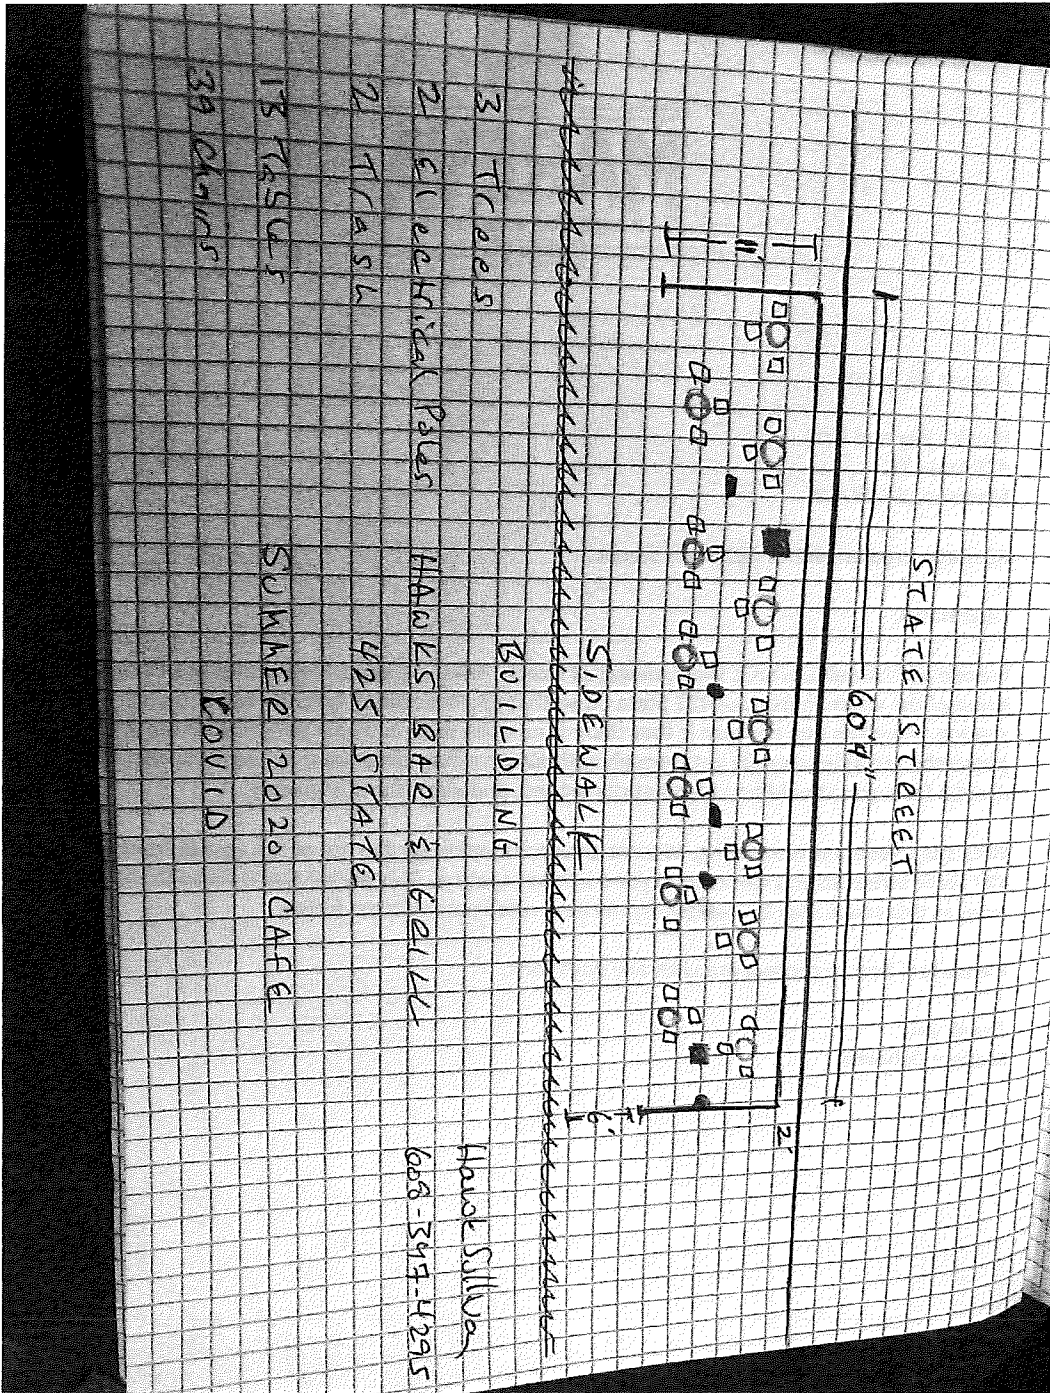 STATE STREET
60'9"
2'
11'
6'
SIDEWALK
BUILDING
3 Trees
2 Electrical Poles
2 Trash
13 Tables
39 Chairs
HAWKS BAR & GRILL
425 STATE
SUMMER 2020 CAFE
COVID
Hawk Sullivan
608-347-4295